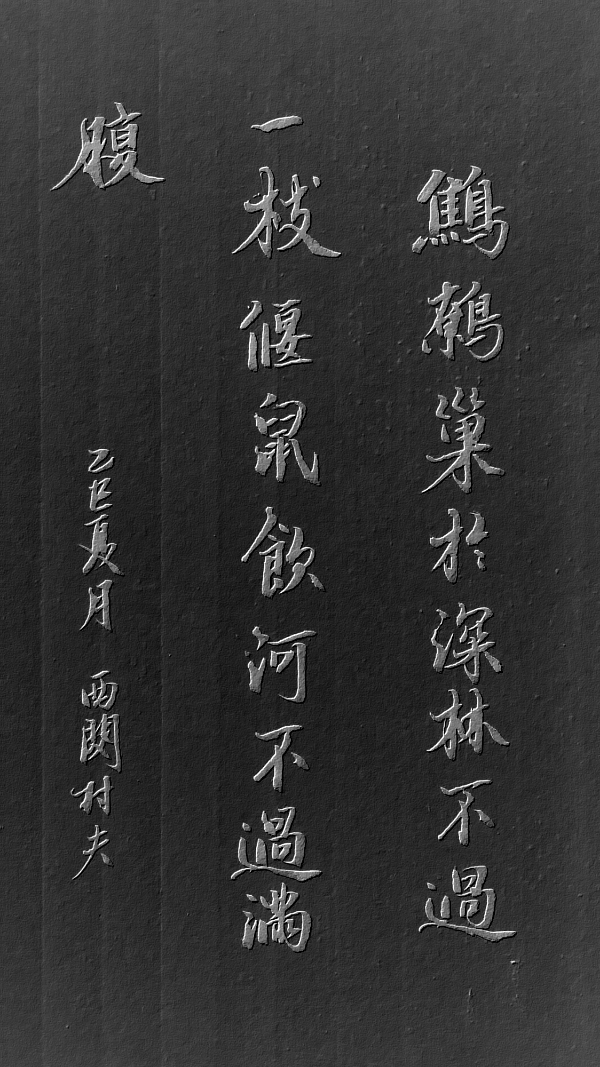 鷦鷯巢於深林不過
一枝偃鼠飲河不過滿
腹
乙巳夏月 西關村夫